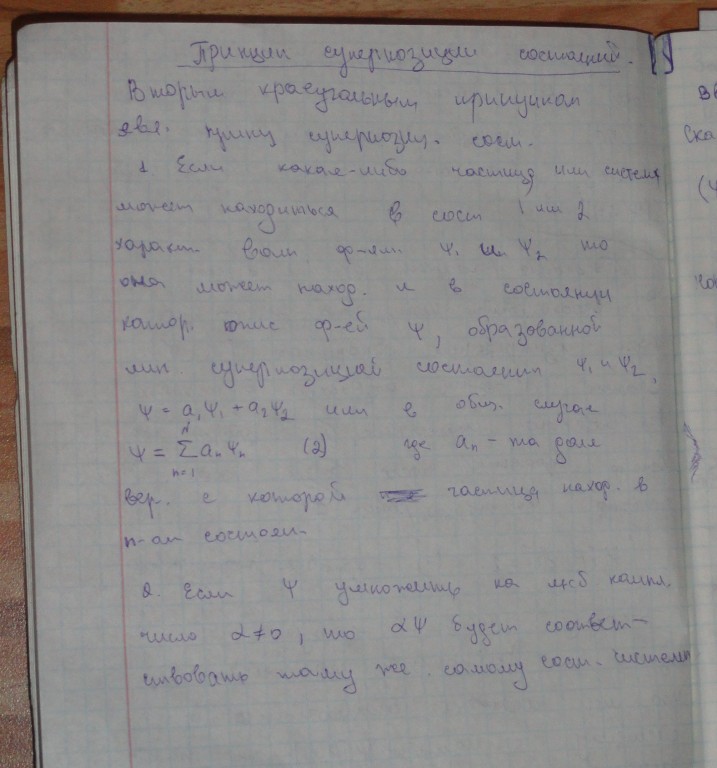 Принцип суперпозиции состояний.
Вторым краеугольным принципом
явл. принц суперпозиц. сост.
1. Если какая-либо частица или система
может находиться в сост 1 или 2
характ. волн ф-ями ψ₁ и ψ₂ то
она может наход. и в состоянии
котор. опис ф-ей ψ, образованной
лин. суперпозицией состояний ψ₁ и ψ₂,
ψ = a₁ψ₁ + a₂ψ₂ или в общ. случае
ψ = Σ aₙψₙ (2) где aₙ - та доля
N
n=1
вер. с которой частица наход. в
n-ом состоян.
2. Если ψ умножить на люб компл.
число α≠0, то αψ будет соответ-
ствовать тому же самому сост. системы
Ска